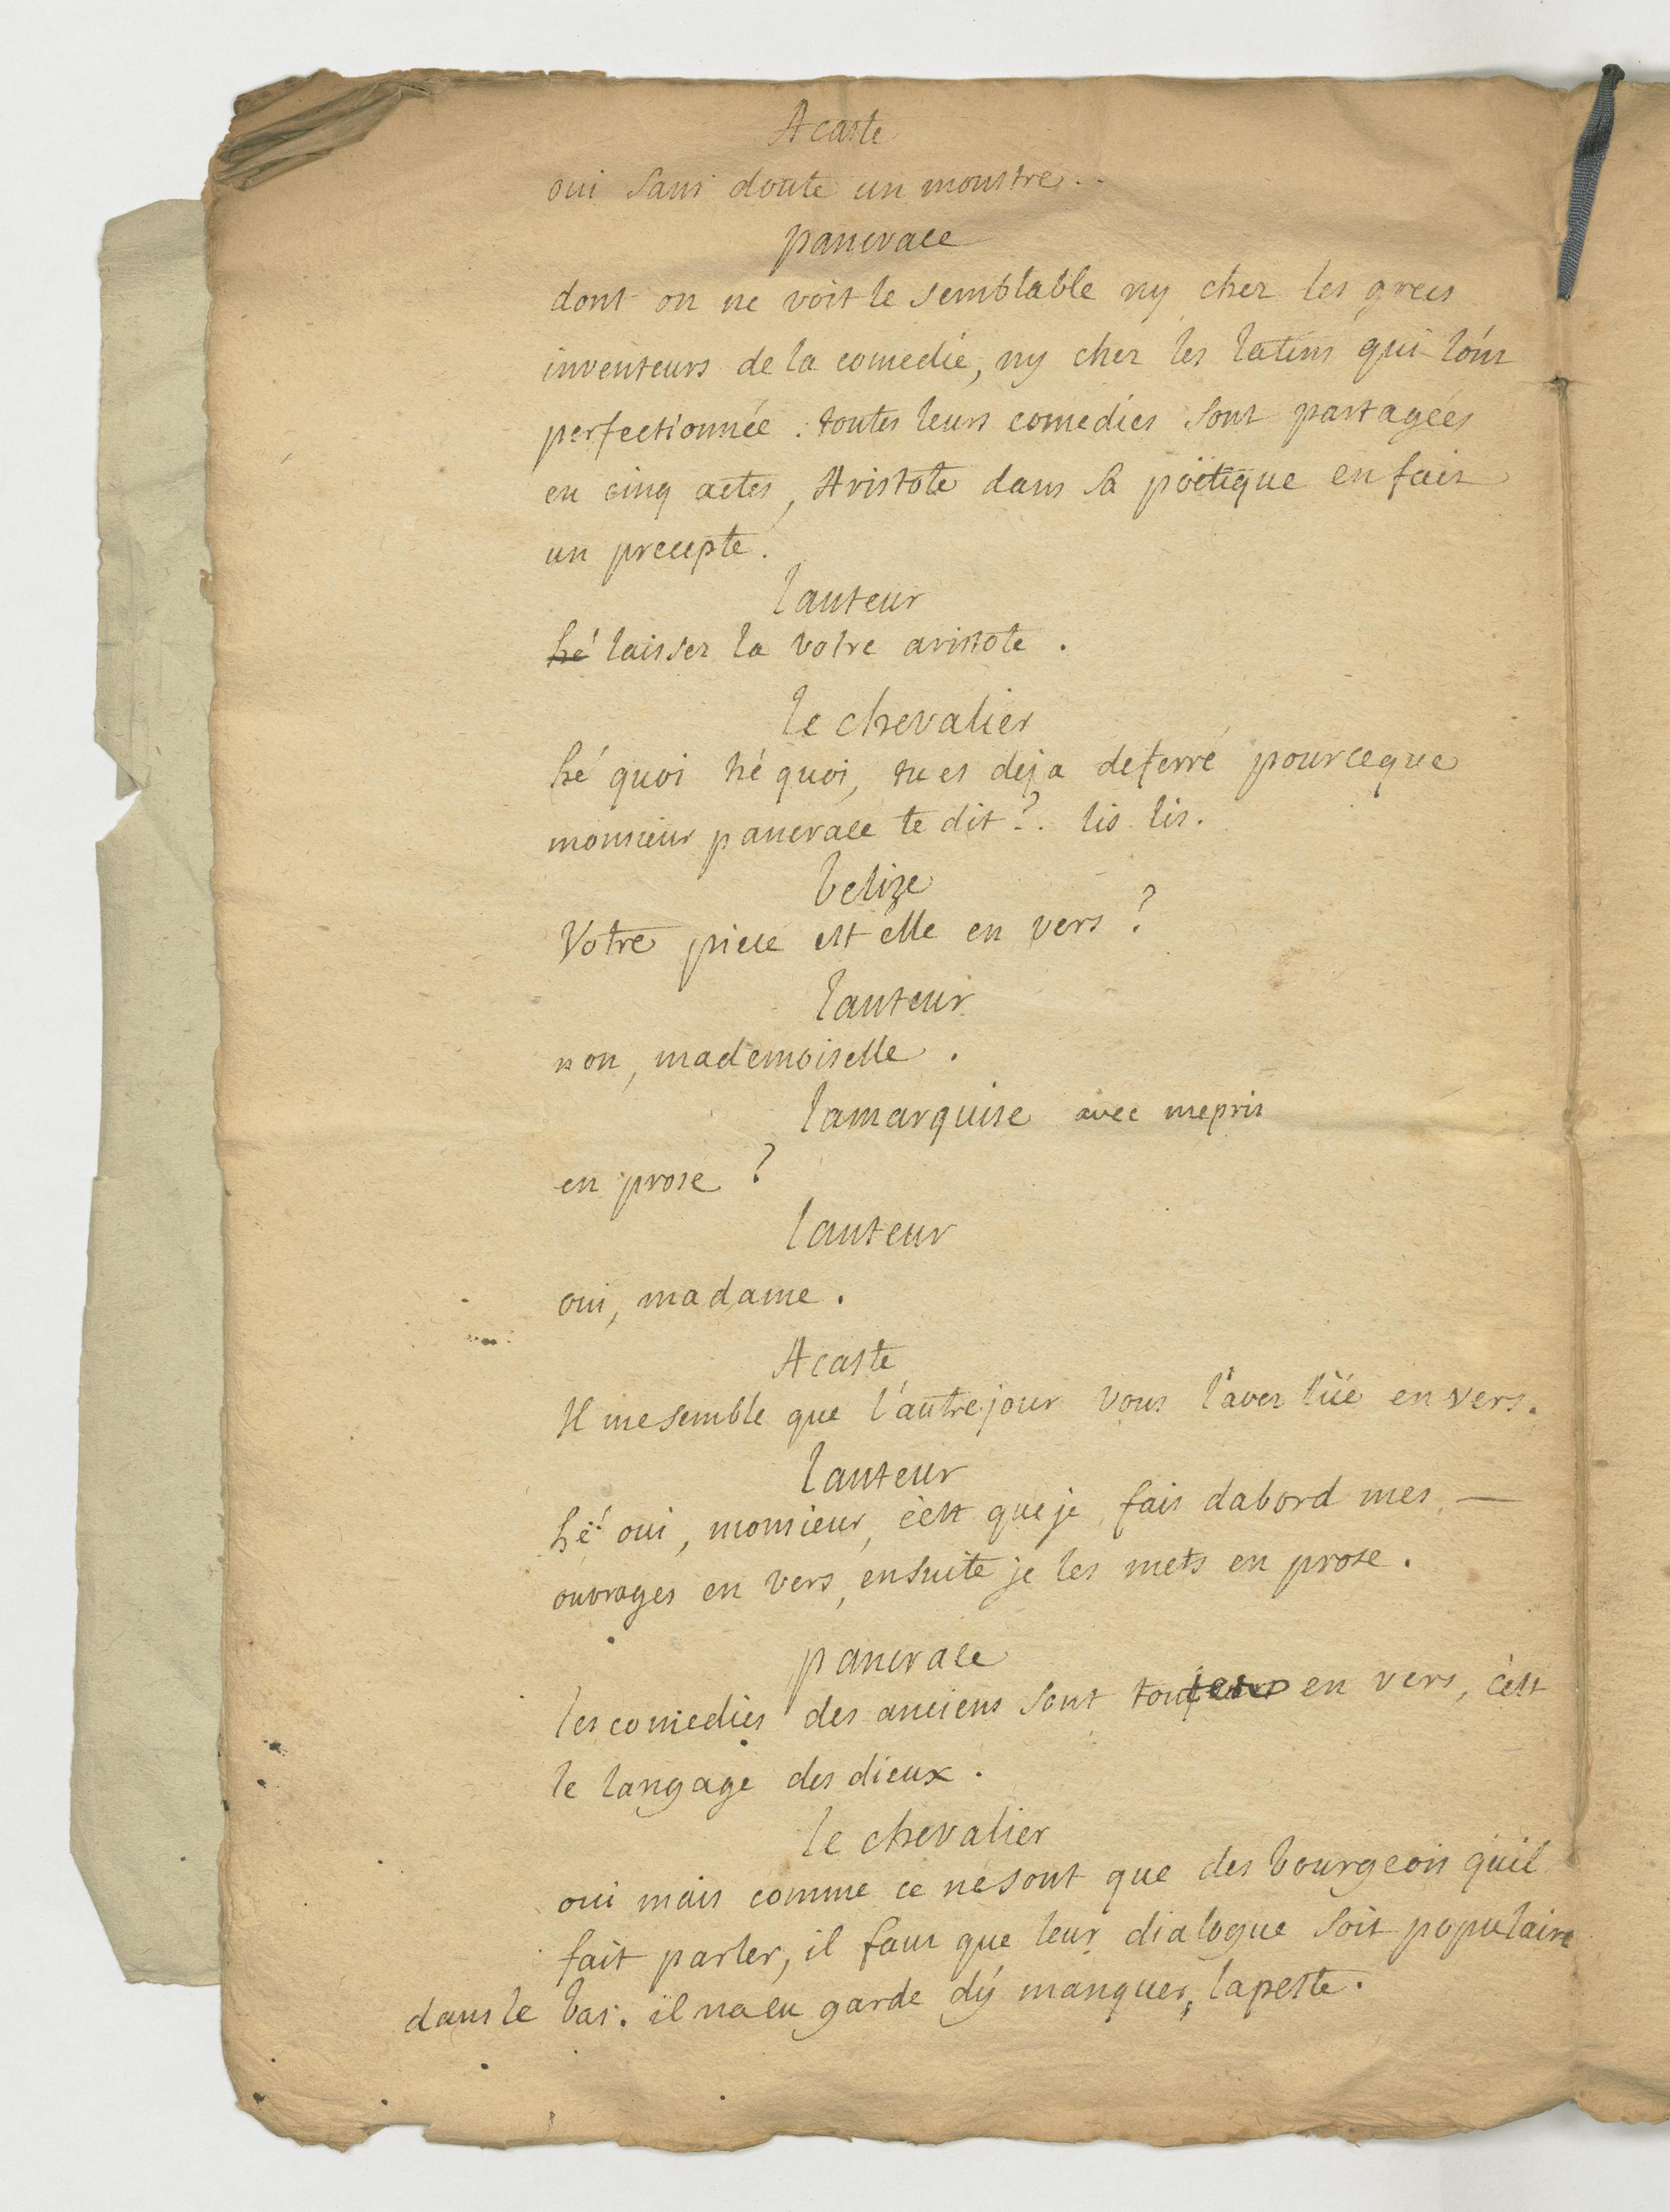 Acaste
oui sans doute un monstre..
pancrace
dont on ne voit le semblable ny chez les grecs
inventeurs de la comedie, ny chez les latins qui l'ont
perfectionnée : toutes leurs comedies sont partagées
en cinq actes, Aristote dans sa poëtique en fait
un precepte.
lauteur
hé laissez la votre aristote.
le chevalier
hé quoi hé quoi, tu es deja deferré pourceque
monsieur pancrace te dit ?. lis lis.
belize
Votre piece est elle en vers ?
lauteur
non, mademoiselle.
lamarquise avec mepris
en prose ?
lauteur
oui, madame.
Acaste
Il me semble que l'autre jour vous l'avez lüe en vers.
lauteur
hé oui, monsieur, c'est que je fais dabord mes —
ouvrages en vers, ensuite je les mets en prose.
pancrace
les comedies des anciens sont en vers, c'est
le langage des dieux.
le chevalier
oui mais comme ce ne sont que des bourgeois qu'il
fait parler, il faut que leur dialogue soit populaire
dans le bas. il na eu garde dy manquer, lapeste.